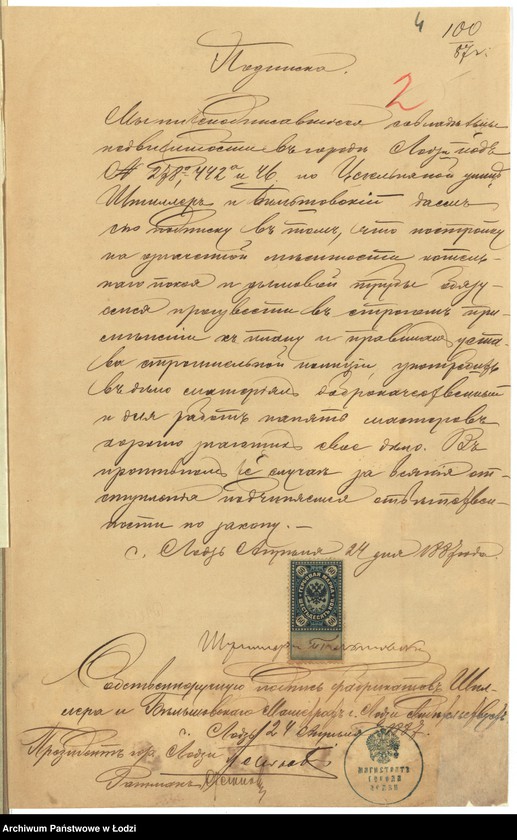 4
100
87 г.
Подписка.
2
Мы нижеподписавшіеся совладѣльцы
недвижимости въ городѣ Лодзи подъ
№ 278ª, 442ª и 46, по Цегельняной улицѣ
Шпиллеръ и Бильтовскій даемъ
сію подписку въ томъ, что постройку
на означенной мѣстности котель-
наго покоя и дымовой трубы обязу-
емся произвести въ строгомъ при-
мѣненіи къ плану и правиламъ уста-
ва строительной полиціи, употребивъ
въ дѣло матеріалъ доброкачественный
и для работъ нанять мастеровъ
хорошо знающихъ свое дѣло. Въ
противномъ же случаѣ за всякія от-
ступленія подчиняемся отвѣтствен-
ности по закону. —
г. Лодзь Апрѣля 24 дня 1887 года.
60 60
ГЕРБОВАЯ МАРКА
ШЕСТЬДЕСЯТЪ КОП.
60 60
Собственноручную подпись фабрикантовъ Шпил-
лера и Бильтовскаго Магистратъ г. Лодзи
г. Лодзь 24 Апрѣля 1887 г.
Президентъ гор. Лодзи
Ратманъ
МАГИСТРАТЪ
ГОРОДА
ЛОДЗИ
Archiwum Państwowe w Łodzi